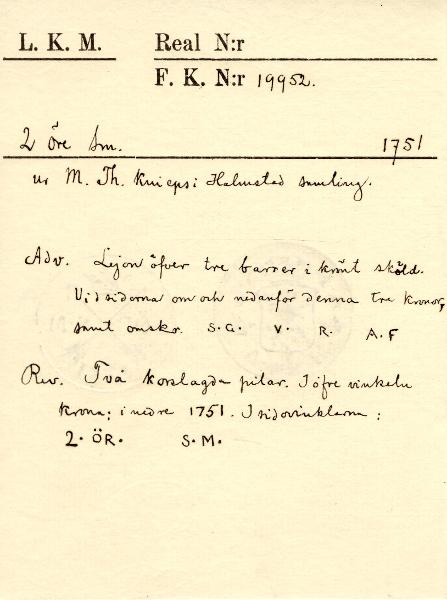 L. K. M. Real N:r
F. K. N:r 19952.
2 öre Sm. 1751
ur M. Th. Knieps i Halmstad samling.
Adv. Lejon öfver tre barrer i krönt sköld.
Vid sidorna om och nedanför denna tre kronor,
samt omskr. S.G. V. R. A.F
Rev. Två korslagda pilar. I öfre vinkeln
krona; i nedre 1751. I sidovinklarna:
2. ÖR. S.M.